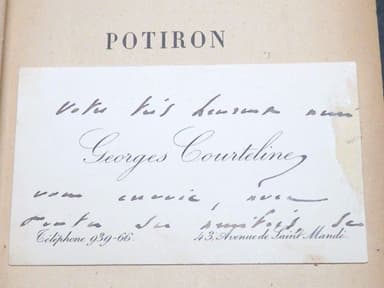 POTIRON
Votre très heureux ami
Georges Courteline
vous envoie, avec
toutes ses amitiés, sa
Téléphone 939-66. 43, Avenue de Saint Mandé